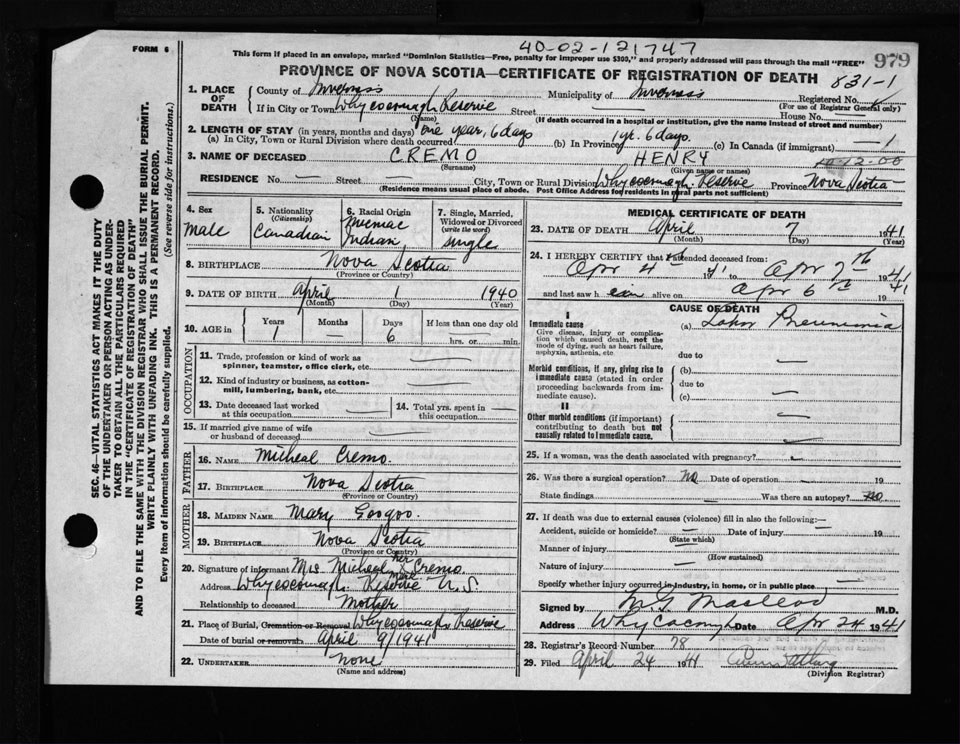 FORM 6
40-02-121747
This form if placed in an envelope, marked "Dominion Statistics—Free, penalty for improper use $300," and properly addressed will pass through the mail "FREE"
979
PROVINCE OF NOVA SCOTIA—CERTIFICATE OF REGISTRATION OF DEATH
831-1
1. PLACE OF DEATH
County of Inverness Municipality of Inverness Registered No.
(For use of Registrar General only)
If in City or Town Whycocomagh Reserve Street — House No. —
(Name) (If death occurred in a hospital or institution, give the name instead of street and number)
2. LENGTH OF STAY (in years, months and days)
(a) In City, Town or Rural Division where death occurred one year, 6 days (b) In Province 1 yr. 6 days. (c) In Canada (if immigrant) — 1
3. NAME OF DECEASED CREMO HENRY
10-12-00
(Surname) (Given name or names)
RESIDENCE No. — Street — City, Town or Rural Division Whycocomagh Reserve Province Nova Scotia
(Residence means usual place of abode. Post Office Address for residents in rural parts not sufficient)
4. Sex male
5. Nationality (Citizenship) Canadian
6. Racial Origin Micmac Indian
7. Single, Married, Widowed or Divorced (write the word) single
8. BIRTHPLACE Nova Scotia
(Province or Country)
9. DATE OF BIRTH April 1 1940
(Month) (Day) (Year)
10. AGE in Years 1 Months — Days 6 If less than one day old hrs. or min.
OCCUPATION
11. Trade, profession or kind of work as spinner, teamster, office clerk, etc. —
12. Kind of industry or business, as cotton-mill, lumbering, bank, etc. —
13. Date deceased last worked at this occupation —
14. Total yrs. spent in this occupation. —
15. If married give name of wife or husband of deceased —
FATHER
16. NAME Micheal Cremo.
17. BIRTHPLACE Nova Scotia
(Province or Country)
MOTHER
18. MAIDEN NAME Mary Googoo.
19. BIRTHPLACE Nova Scotia
(Province or Country)
20. Signature of informant Mrs. Micheal her X mark Cremo.
Address Whycocomagh Reserve N.S.
Relationship to deceased Mother
21. Place of Burial, Cremation or Removal Whycocomagh Reserve
Date of burial or removal April 9/1941
22. UNDERTAKER None
(Name and address)
MEDICAL CERTIFICATE OF DEATH
23. DATE OF DEATH April 7 1941
(Month) (Day) (Year)
24. I HEREBY CERTIFY that I attended deceased from:
Apr 4th 41 to Apr 7th 1941
and last saw him alive on Apr 6th 1941
CAUSE OF DEATH
I
Immediate cause
Give disease, injury or complication which caused death, not the mode of dying, such as heart failure, asphyxia, asthenia, etc.
(a) Lobar Pneumonia
due to —
Morbid conditions, if any, giving rise to immediate cause (stated in order proceeding backwards from immediate cause).
(b) —
due to
(c) —
II
Other morbid conditions (if important) contributing to death but not causally related to immediate cause.
25. If a woman, was the death associated with pregnancy?
26. Was there a surgical operation? No Date of operation — 19
State findings — Was there an autopsy? No
27. If death was due to external causes (violence) fill in also the following:—
Accident, suicide or homicide? — Date of injury 19
(State which)
Manner of injury —
(How sustained)
Nature of injury —
Specify whether injury occurred in industry, in home, or in public place
Signed by M.G. MacLeod M.D.
Address Whycocomagh Date Apr 24 1941
28. Registrar's Record Number 78
29. Filed April 24 1941
(Division Registrar)
SEC. 46—VITAL STATISTICS ACT MAKES IT THE DUTY
OF THE UNDERTAKER OR PERSON ACTING AS UNDER-
TAKER TO OBTAIN ALL THE PARTICULARS REQUIRED
IN THE "CERTIFICATE OF REGISTRATION OF DEATH"
AND TO FILE THE SAME WITH THE DIVISION REGISTRAR WHO SHALL ISSUE THE BURIAL PERMIT.
WRITE PLAINLY WITH UNFADING INK. THIS IS A PERMANENT RECORD.
Every item of information should be carefully supplied. (See reverse side for instructions.)